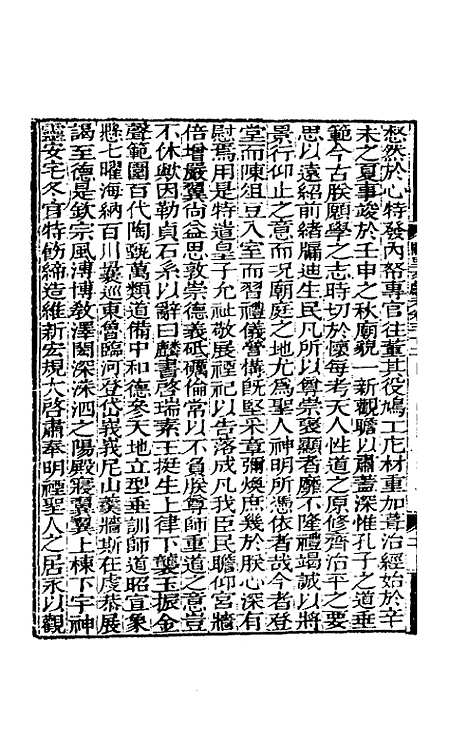 愁然於心特發內帑專官往董其役鳩工庀材重加葺治經始於辛
未之夏事竣於壬申之秋廟貌一新觀瞻以肅蓋深惟孔子之道垂
範今古朕願學之志時切於懷每考天人性道之原修齊治平之要
思以遠紹前緒牖迪生民凡所以尊崇褒顯者靡不隆禮竭誠以將
景行仰止之意而況廟庭之地尤為聖人神明所憑依者哉今者登
堂而陳俎豆入室而習禮儀營構既堅采章彌煥庶幾於朕心深有
慰焉用是特遣皇子允祉敬展禋祀以告落成凡我臣民瞻仰宮牆
倍增嚴翼尚益思敦崇德義砥礪倫常以不負朕尊師重道之意豈
不休歟因勒貞石系以辭曰麟書啓瑞素王挺生上律下襲玉振金
聲範圍百代陶甄萬類道備中和德參天地立型垂訓師道昭宣象
懸七曜海納百川曩巡東魯臨河登岱峩峩尼山羹牆斯在虔恭展
謁至德是欽宗風溥博敎澤閎深洙泗之陽殿寢翼翼上棟下宇神
靈安宅冬官特飭締造維新宏規大啓肅奉明禋聖人之居永以觀